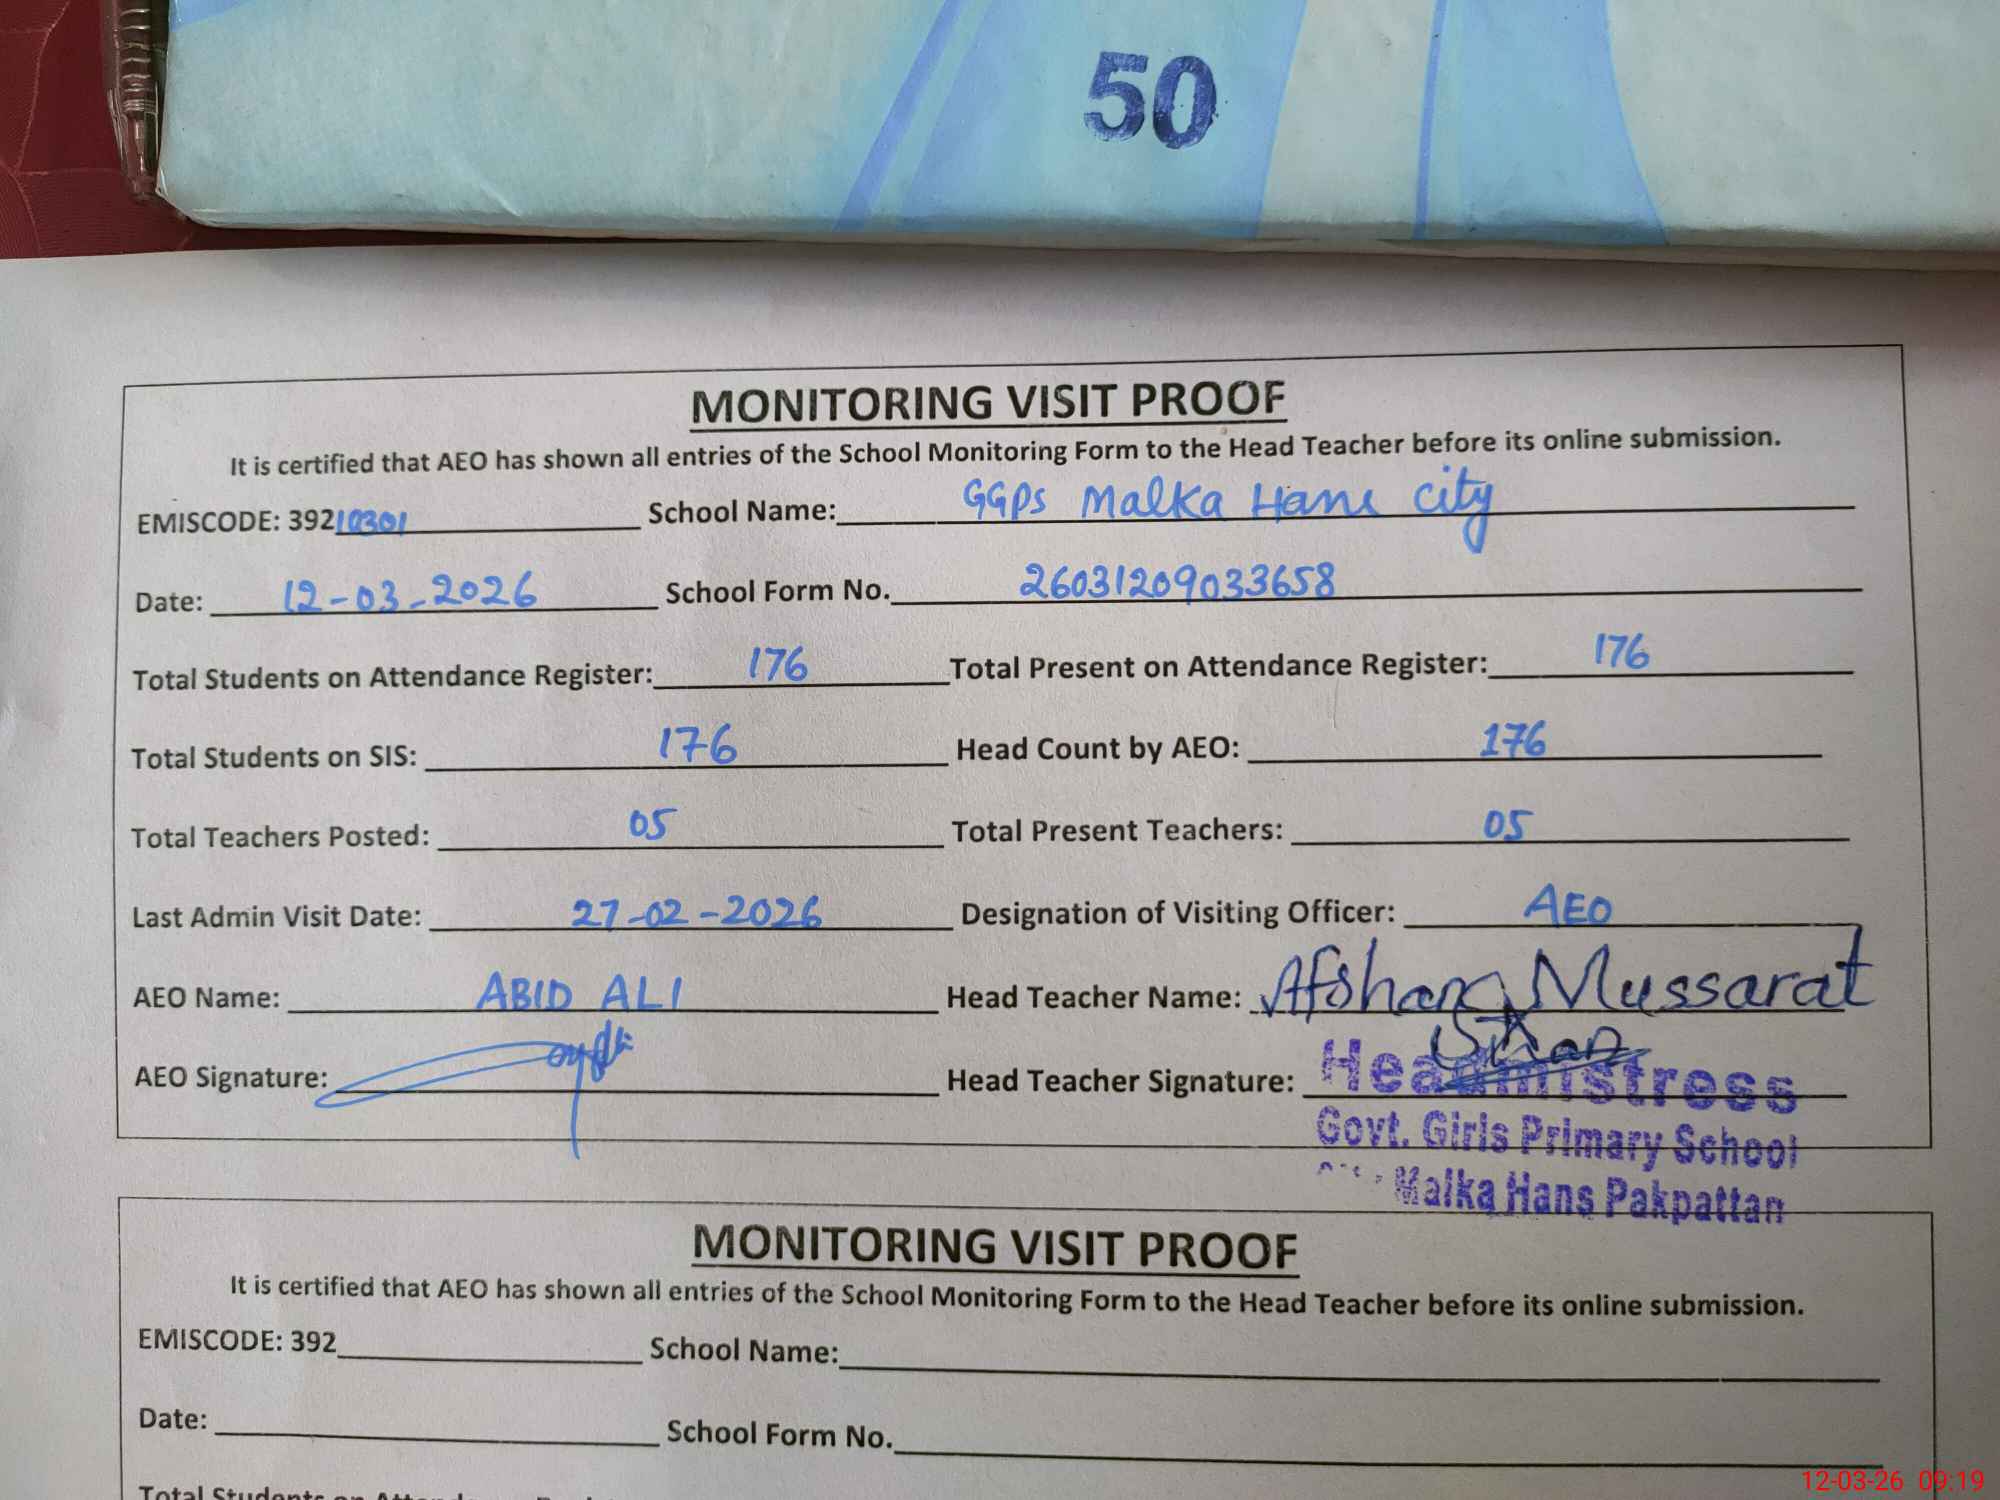 50
MONITORING VISIT PROOF
It is certified that AEO has shown all entries of the School Monitoring Form to the Head Teacher before its online submission.
EMISCODE: 39210301 School Name: GGPS Malka Hans City
Date: 12-03-2026 School Form No. 26031209033658
Total Students on Attendance Register: 176 Total Present on Attendance Register: 176
Total Students on SIS: 176 Head Count by AEO: 176
Total Teachers Posted: 05 Total Present Teachers: 05
Last Admin Visit Date: 27-02-2026 Designation of Visiting Officer: AEO
AEO Name: ABID ALI Head Teacher Name: Afshan Mussarat
AEO Signature: Head Teacher Signature:
Headmistress
Govt. Girls Primary School
Malka Hans Pakpattan
MONITORING VISIT PROOF
It is certified that AEO has shown all entries of the School Monitoring Form to the Head Teacher before its online submission.
EMISCODE: 392 School Name:
Date: School Form No.
Total Students on
12-03-26 09:19